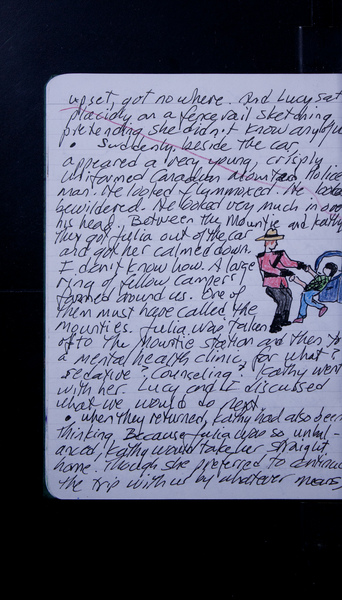 upset, got nowhere. And Lucy sat
placidly on a fence rail sketching,
pretending she didn't know any of us.
• Suddenly, beside the car,
appeared a very young, crisply
uniformed Canadian Mounted Police
man. He looked flummoxed. He looked
bewildered. He looked very much in over
his head. Between the Mountie and Kathy
they got Julia out of the car
and got her calmed down.
I don't know how. A large
ring of fellow campers
formed around us. One of
them must have called the
mounties. Julia was taken
off to the Mountie station and then to
a mental health clinic, for what?
sedative? Counseling? Kathy went
with her. Lucy and I discussed
what we would do next.
• When they returned, Kathy had also been
thinking. Because Julia was so unbal-
anced, Kathy would take her straight
home. Though she preferred to continue
the trip with us by whatever means,